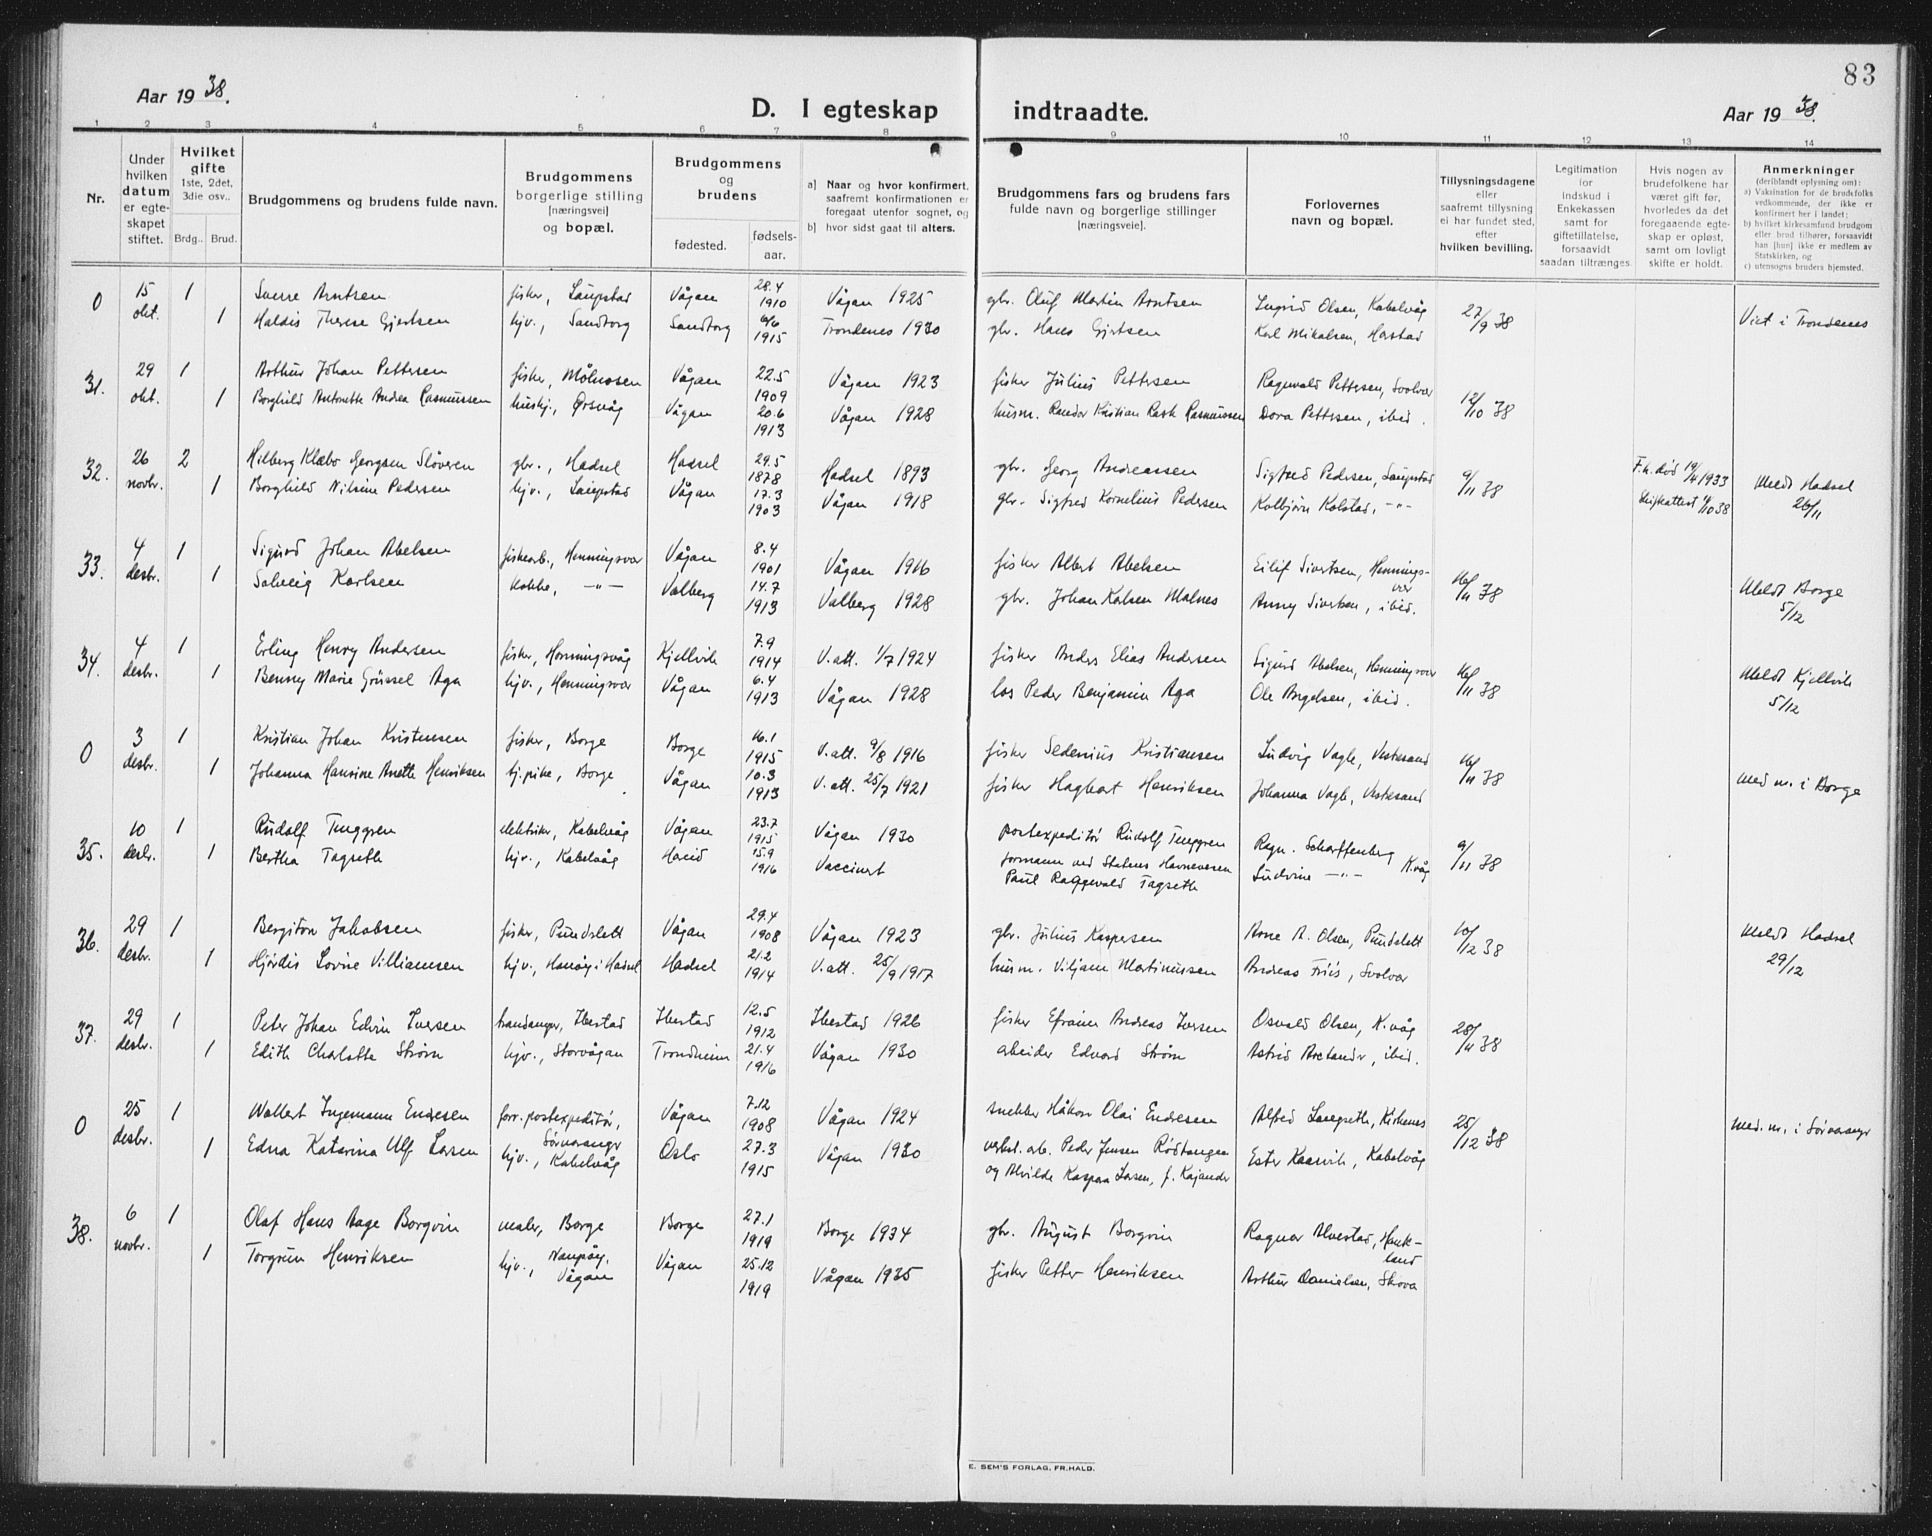 83
Aar 1938.
D. I egteskap indtraadte.
Aar 1938.
1 2 3 4 5 6 7 8 9 10 11 12 13 14
Nr.
Under hvilken datum er egteskapet stiftet.
Hvilket gifte 1ste, 2det, 3die osv..
Brdg.. Brud.
Brudgommens og brudens fulde navn.
Brudgommens borgerlige stilling [næringsvei] og bopæl.
Brudgommens og brudens
fødested. fødselsaar.
a] Naar og hvor konfirmert, saafremt konfirmationen er foregaat utenfor sognet, og
b] hvor sidst gaat til alters.
Brudgommens fars og brudens fars fulde navn og borgerlige stillinger [næringsveie].
Forlovernes navn og bopæl.
Tillysningsdagene eller saafremt tillysning ei har fundet sted, efter hvilken bevilling.
Legitimation for indskud i Enkekassen samt for giftetillatelse, forsaavidt saadan tiltrænges.
Hvis nogen av brudefolkene har været gift før, hvorledes da det foregaaende egteskap er opløst, samt om lovlig skifte er holdt.
Anmerkninger (deriblandt oplysning om):
a) Vaksination for de brudefolks vedkommende, der ikke er konfirmert her i landet;
b) hvilket kirkesamfund brudgom eller brud tilhører, forsaavidt han [hun] ikke er medlem av Statskirken, og
c) utensogns bruders hjemsted.
0 15 okt. 1 Sverre Arntsen fisker, Laupstad Vågan 28.4 1910 Vågan 1925 gbr. Oluf Martin Arntsen Ingrid Olsen, Kabelvåg 27/9 38 Viet i Trondenes
1 Haldis Therese Gjertsen hjv., Sandtorg Sandtorg 6/6 1915 Trondenes 1930 gbr. Hans Gjertsen Karl Mikalsen, Harstad
31. 29 okt. 1 Arthur Johan Pettersen fisker, Mølnosen Vågan 22.5 1909 Vågan 1923 fisker Julius Pettersen Ragnvald Pettersen, Svolvær 12/10 38
1 Borghild Antonette Andrea Rasmussen hushj., Ørsvåg Vågan 20.6 1913 Vågan 1928 husm. Randor Kristian Rask Rasmussen Dora Pettersen, ibid.
32. 26 novbr. 2 Hilberg Klæbo Georgsen Sløveren gbr., Hadsel Hadsel 29.5 1878 Hadsel 1893 gbr. Georg Andreassen Sigfred Pedersen, Laupstad 9/11 38 F.h. død 19/4 1933 Meldt Hadsel 26/11
1 Borghild Nilsine Pedersen hjv., Laupstad Vågan 17.3 1903 Vågan 1918 gbr. Sigfred Kornelius Pedersen Kolbjørn Kolstad, -"- Skifteattest 11/10 38
33. 4 desbr. 1 Sigurd Johan Abelsen fiskearb., Henningsvær Vågan 8.4 1901 Vågan 1916 fisker Albert Abelsen Eilif Sivertsen, Henningsvær 16/11 38 Meldt Borge 5/12
1 Solveig Karlsen kokke, -"- Valberg 14.7 1913 Valberg 1928 gbr. Johan Kalsen Malnes Anny Sivertsen, ibid.
34. 4 desbr. 1 Erling Henry Andersen fisker, Honningsvåg Kjellvik 7.9 1914 V.att. 1/7 1924 fisker Anders Elias Andersen Sigurd Abelsen, Henningsvær 16/11 38 Meldt Kjellvik 5/12
1 Benny Marie Grüssel Aga hjv., Henningsvær Vågan 6.4 1913 Vågan 1928 los Peder Benjamin Aga Ole Angelsen, ibid.
0 3 desbr. 1 Kristian Johan Kristensen fisker, Borge Borge 16.1 1915 V.att. 9/8 1916 fisker Sedenius Kristiansen Ludvig Vagle, Vestresand 16/11 38 med m. i Borge
1 Johanna Hansine Anette Henriksen hj.pike, Borge Vågan 10.3 1913 V.att. 25/7 1921 fisker Hagbart Henriksen Johanna Vagle, Vestresand
35. 10 desbr. 1 Rudolf Tenggren elektriker, Kabelvåg Vågan 23.7 1915 Vågan 1930 postexpeditør Rudolf Tenggren Ragn. Scharffenberg 9/11 38
1 Bertha Tagseth hjv., Kabelvåg Havid 15.9 1916 Vaccinert formann ved Statens Havnevesen Paul Raggevald Tagseth Ludvine -"- K.våg
36. 29 desbr. 1 Bergiton Jakobsen fisker, Pundslett Vågan 29.4 1908 Vågan 1923 gbr. Julius Kaspersen Arne A. Olsen, Pundslett 10/12 38 Meldt Hadsel 29/12
1 Hjørdis Lovise Villiamsen hjv., Hanøy i Hadsel Hadsel 21.2 1914 V.att. 25/9 1917 husm. Viljam Martinussen Andreas Friis, Svolvær
37. 29 desbr. 1 Peter Johan Edvin Iversen handanger, Ibestad Ibestad 12.5 1912 Ibestad 1926 fisker Efraim Andreas Iversen Osvald Olsen, K.våg 28/11 38
1 Edith Charlotte Strøm hjv., Storvågan Trondheim 21.4 1916 Vågan 1930 arbeider Edvard Strøm Astrid Arctander, ibid.
0 25 desbr. 1 Wollert Ingemann Endresen forr. postexpeditør, Sørvaranger Vågan 7.12 1908 Vågan 1924 snekker Håkon Olai Endresen Alfred Langseth, Kirkenes 25/12 38 med. m. i Sørvaranger
1 Edna Katarina Ulf Larsen hjv., Kabelvåg Oslo 27.3 1915 Vågan 1930 verkst. arb. Peder Jensen Rødtangen og Alvilde Kaspara Larsen, f. Kajander Ester Kaarvik, Kabelvåg
38. 6 novbr. 1 Olaf Hans Aage Borgvin maler, Borge Borge 27.1 1919 Borge 1934 gbr. August Borgvin Ragnar Alvestad, Haukland
1 Torgrun Henriksen hjv., Naupøy, Vågan Vågan 25.12 1919 Vågan 1935 fisker Petter Henriksen Arthur Danielsen, Skova
E. SEM'S FORLAG, FR.HALD.